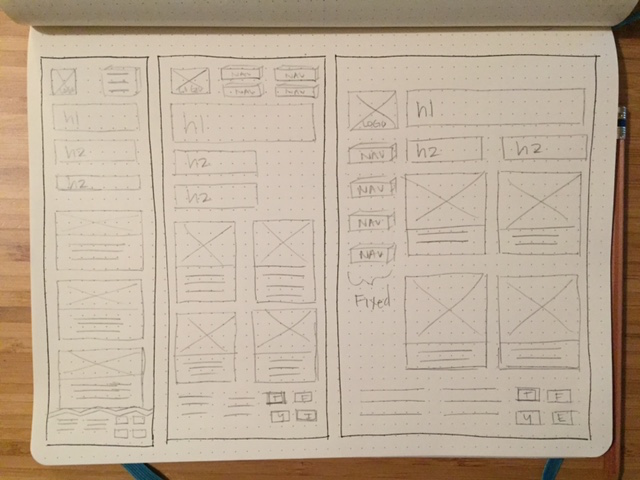 h1
h2
h2
LOGO
NAV
NAV
NAV
NAV
h1
h2
h2
T
F
Y
LOGO
h1
NAV
h2
h2
NAV
NAV
NAV
Fixed
T
F
Y
E